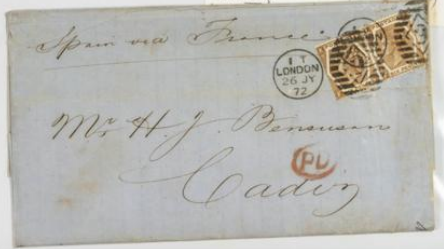 Spain via France
I T
LONDON
26 JY
72
Mr. H. J. Bensusan
PD
Cadiz